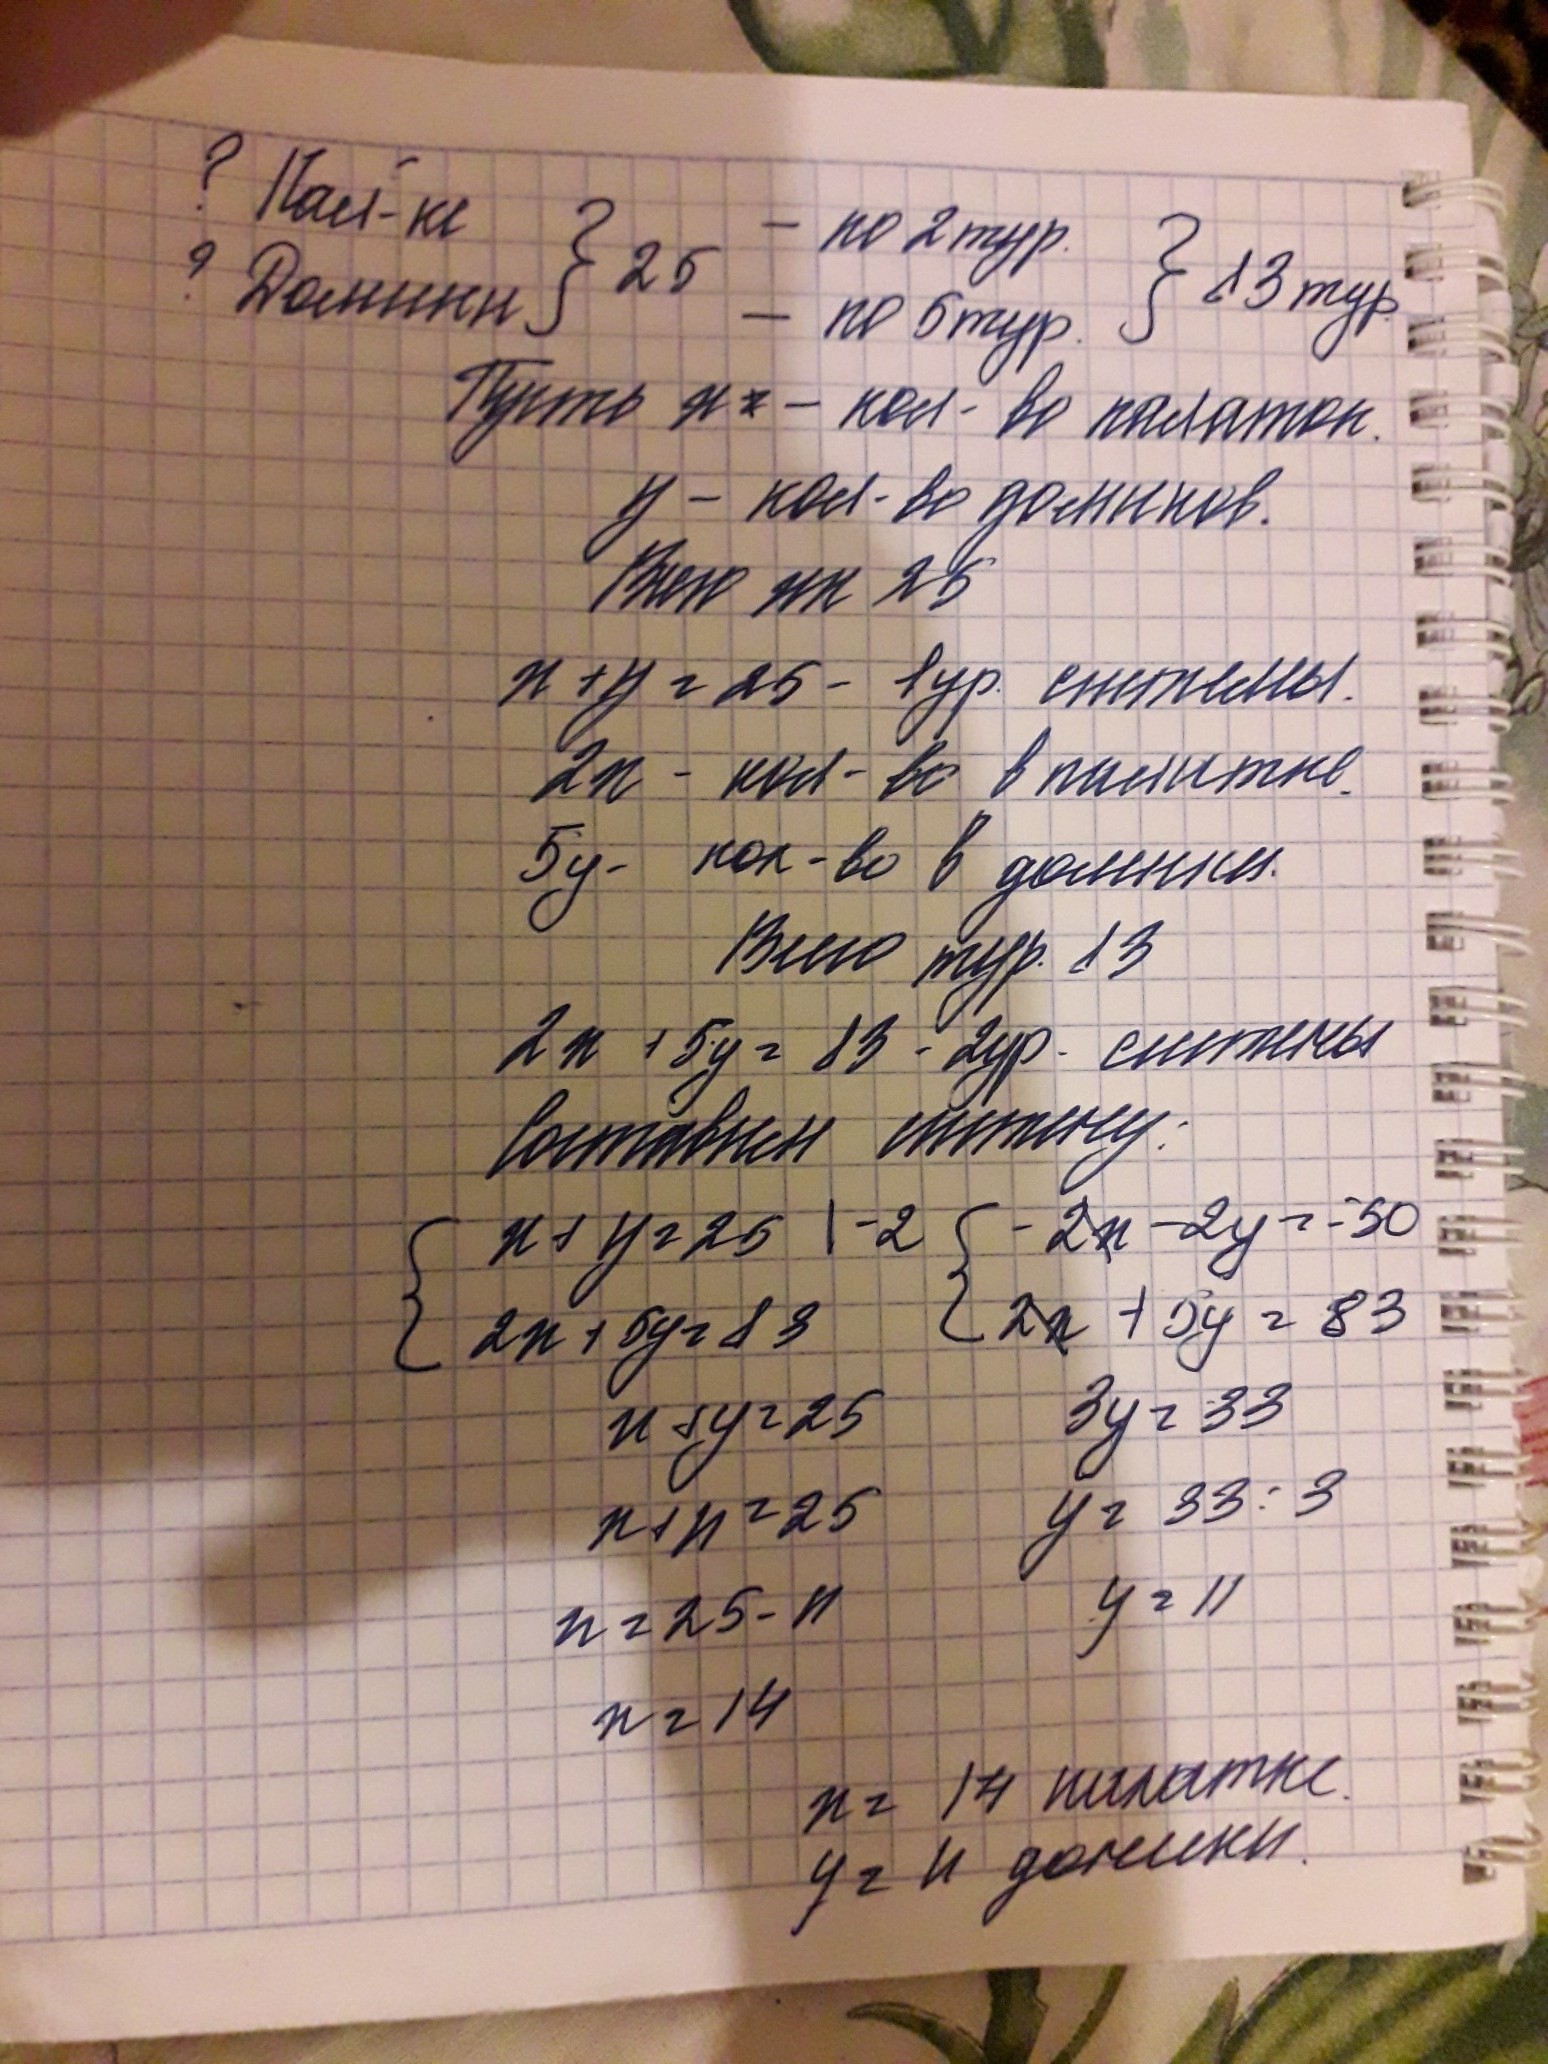 ? Пал-ке } 25 — по 2 тур. } 83 тур.
? Домики — по 5 тур.
Пусть x — кол-во палаток.
y — кол-во домиков.
Всего 25
x + y = 25 - 1 ур. системы.
2x - кол-во в палатке.
5y - кол-во в домики.
Всего тур. 83
2x + 5y = 83 - 2 ур. системы
Составим систему:
{ x + y = 25 | -2 { -2x - 2y = -50
2x + 5y = 83 2x + 5y = 83
x + y = 25 3y = 33
x + 11 = 25 y = 33 : 3
x = 25 - 11 y = 11
x = 14
x = 14 палатке.
y = 11 домики.